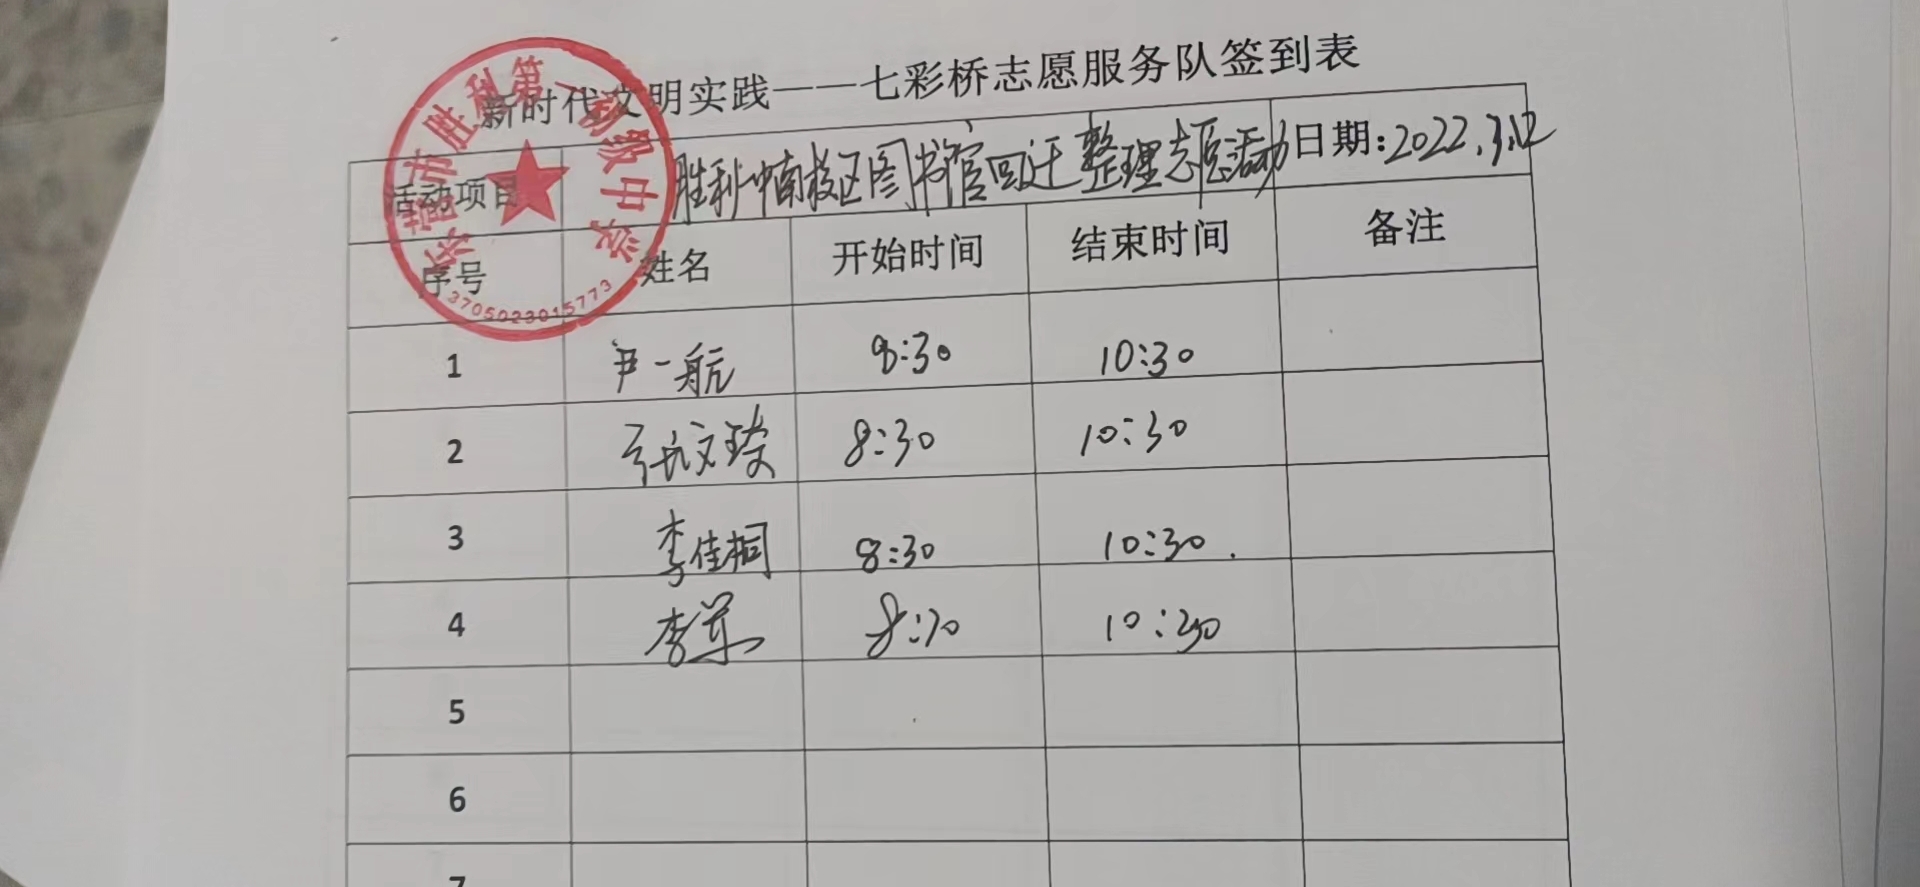 新时代文明实践——七彩桥志愿服务队签到表
东营市胜利第一初级中学
3705023015773
活动项目 胜利一中南校区图书馆回迁整理志愿活动 日期:2022.3.12
序号 姓名 开始时间 结束时间 备注
1 尹一航 8:30 10:30
2 张文 8:30 10:30
3 李佳桐 8:30 10:30.
4 李军 8:30 10:30
5
6
7